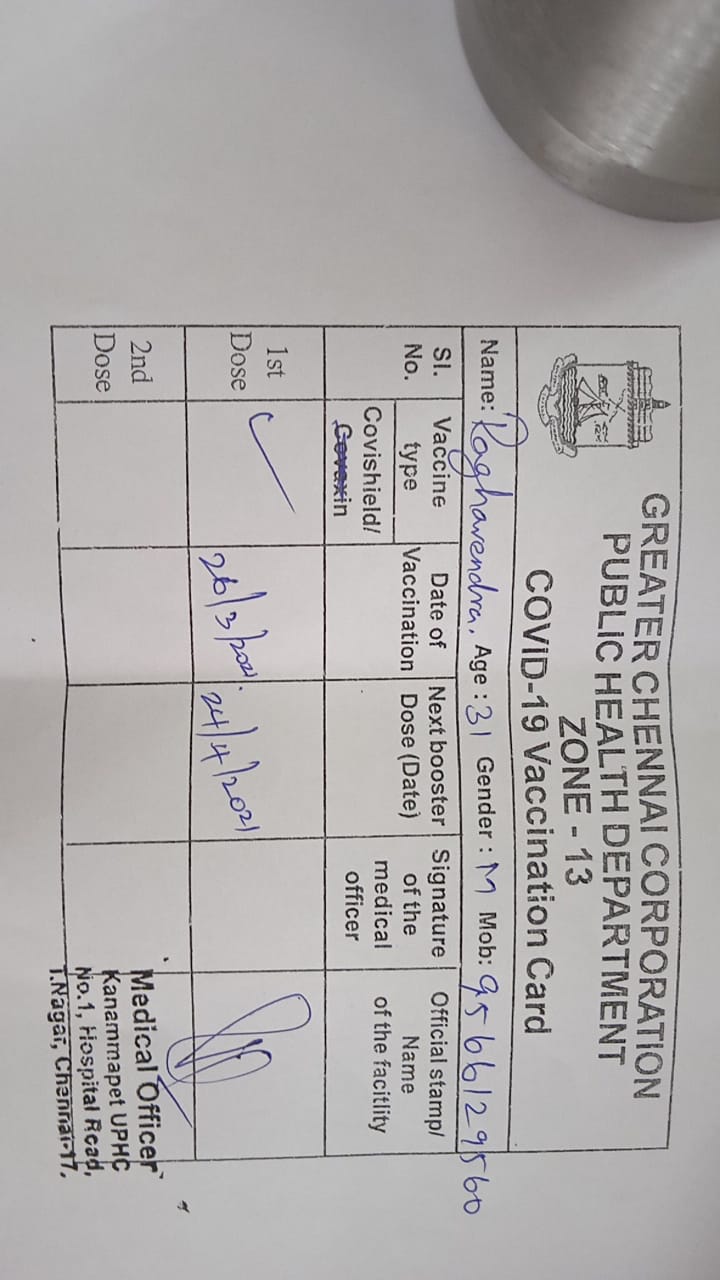 GREATER CHENNAI CORPORATION
PUBLIC HEALTH DEPARTMENT
ZONE - 13
COVID-19 Vaccination Card
Name: Raghavendra. Age : 31 Gender : M Mob: 9566129560
Sl. No. Vaccine type Date of Vaccination Next booster Dose (Date) Signature of the medical officer Official stamp/ Name of the facitlity
Covishield/ Covaxin
1st Dose 26/3/2021. 24/4/2021
2nd Dose
Medical Officer
Kanammapet UPHC
No.1, Hospital Road,
T.Nagar, Chennai-17.